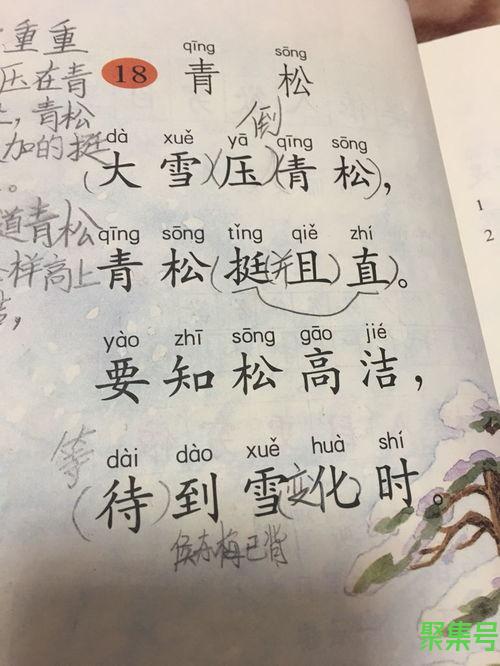 重重
压在青
,青松
加的挺
。
道青松
样高上
qīng sōng
18 青 松
倒
dà xuě yā qīng sōng
(大雪)(压)(青松),
qīng sōng tǐng qiě zhí
青松(挺(并)且)直)。
yào zhī sōng gāo jié
要知松高洁,
等
dài dào xuě huà shí
(待)到雪(变化)时。
侯东梅已背
1
2
聚集号